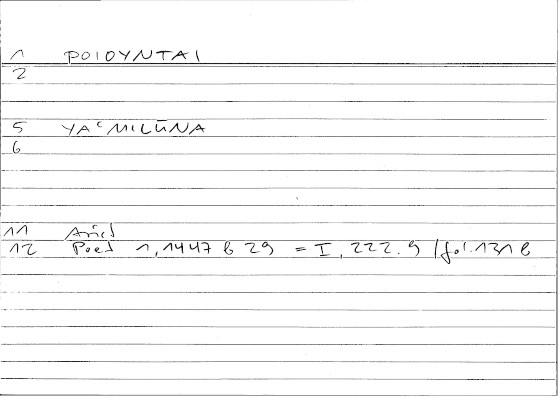 1 POIOYNTAI
2
5 YAʿMILŪNA
6
11 Arist
12 Poet 1,1447 b 29 = I, 222.9 / fol. 131 b